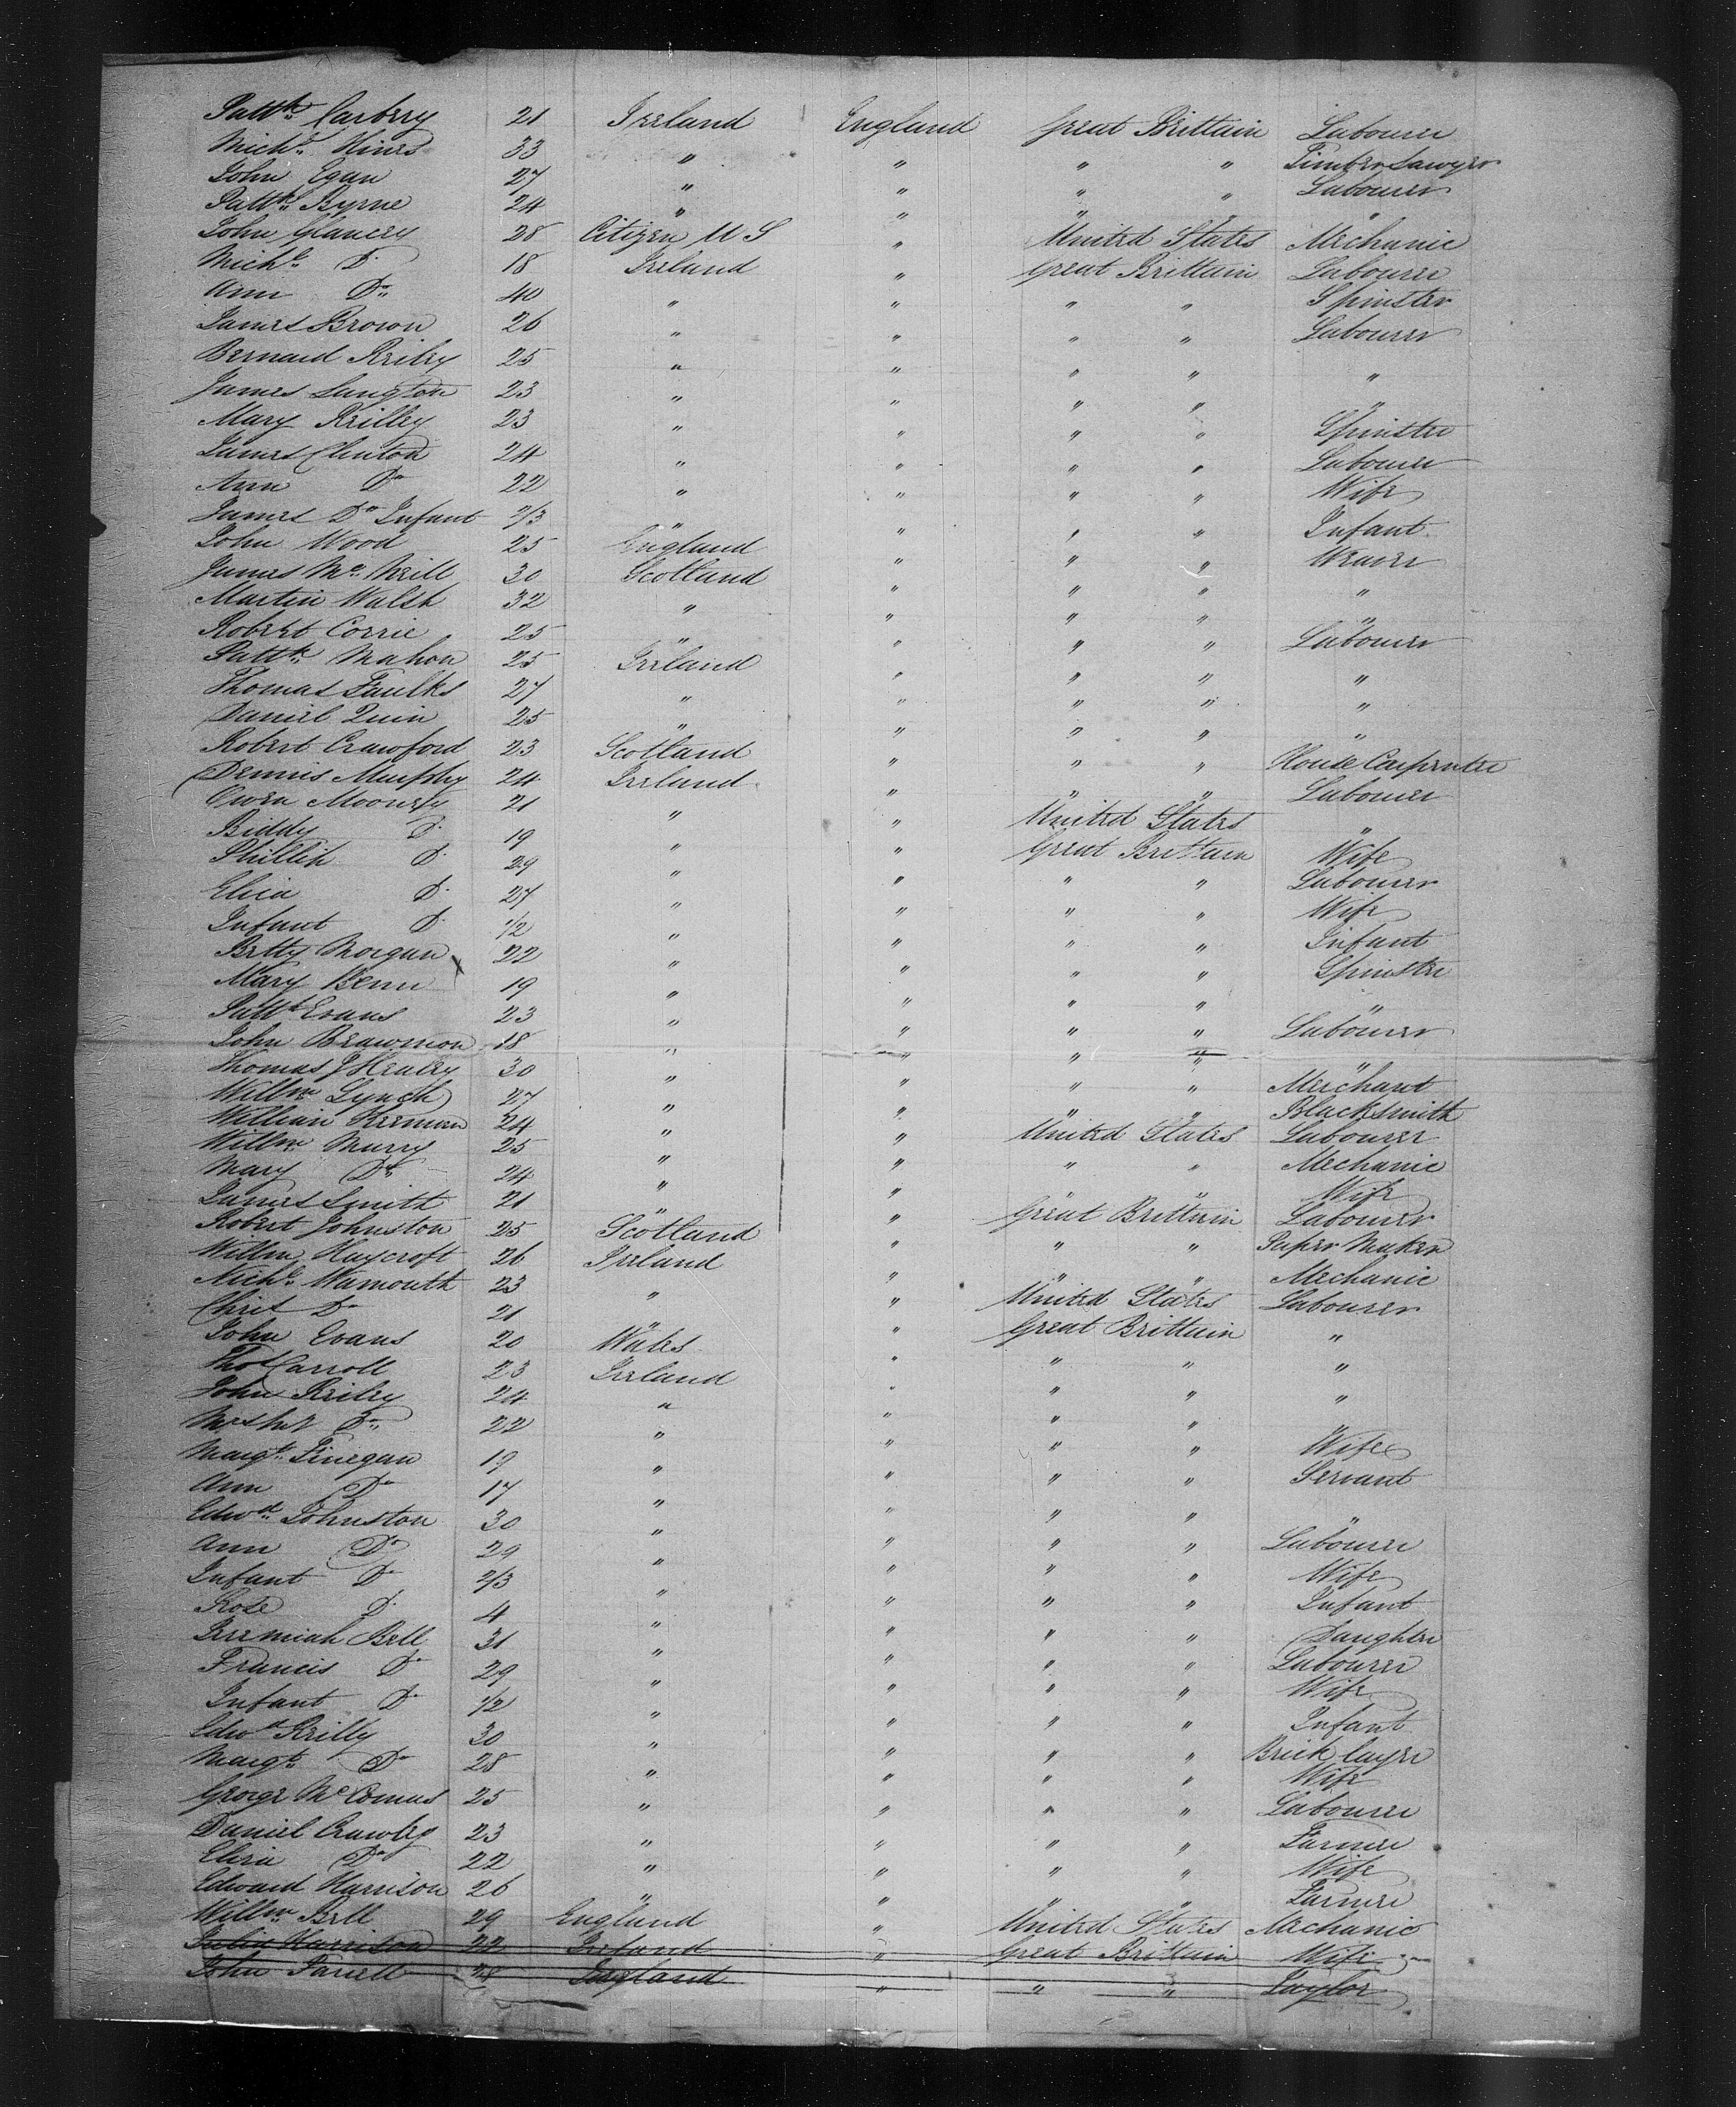 Pattk. Carberry 21 Ireland England Great Brittain Labourer
Michl. Hines 33 " " " " Timber Sawyer
John Egan 27 " " " " Labourer
Pattk. Byrne 24 " " " " "
John Glancey 28 Citizen U S " United States Mechanic
Michl. Do 18 Ireland " Great Brittain Labourer
Ann Do 40 " " " " Spinster
James Brown 26 " " " " Labourer
Bernard Reiley 25 " " " " "
James Langton 23 " " " " "
Mary Reilley 23 " " " " Spinster
James Clinton 24 " " " " Labourer
Ann Do 22 " " " " Wife
James Do Infant 2/3 " " " " Infant
John Wood 25 England " " " Weaver
James Mc. Neill 30 Scotland " " " "
Martin Walsh 32 " " " " "
Robert Corrie 25 " " " " Labourer
Pattk. Mahon 25 Ireland " " " "
Thomas Faulks 27 " " " " "
Daniel Quin 25 " " " " "
Robert Crawford 23 Scotland " " " House Carpenter
Dennis Murphy 24 Ireland " " " Labourer
Owen Mooney 21 " " United States "
Biddy Do 19 " " Great Brittain Wife
Phillip Do 29 " " " " Labourer
Eliza Do 27 " " " " Wife
Infant Do 1/2 " " " " Infant
Betty Morgan 22 " " " " Spinster
Mary Benn 19 " " " " "
Pattk Evans 23 " " " " Labourer
John Brawmon 18 " " " " "
Thomas J Healey 30 " " " " Merchant
Willm. Lynch 27 " " " " Blacksmith
William Kernan 24 " " United States Labourer
Willm. Murry 25 " " " " Mechanic
Mary Do 24 " " " " Wife
James Smith 21 " " Great Brittain Labourer
Robert Johnston 25 Scotland " " " Paper Maker
Willm Haycroft 26 Ireland " " " Mechanic
Nichs. Wamouth 23 " " United States Labourer
Christ Do 21 " " Great Brittain "
John Evans 20 Wales " " " "
Thos Carroll 23 Ireland " " " "
John Reiley 24 " " " "
Do 22 " " " " Wife
Margt. Finegan 19 " " " " Servant
Ann Do 17 " " " " "
Edwd. Johnston 30 " " " " Labourer
Ann Do 29 " " " " Wife
Infant Do 2/3 " " " " Infant
Rose Do 4 " " " " Daughter
Jeremiah Bell 31 " " " " Labourer
Francis Do 29 " " " " Wife
Infant Do 1/2 " " " " Infant
Edwd Reilly 30 " " " " Brick layer
Margt. Do 28 " " " " Wife
George Mc Comus 25 " " " " Labourer
Daniel Crawley 23 " " " " Farmer
Eliza Do 22 " " " " Wife
Edward Harrison 26 " " " " Farmer
Willm. Bell 29 England " United States Mechanic
Julia Harrison 22 Ireland " Great Brittain Wife
John Farrell 28 England " " " Taylor